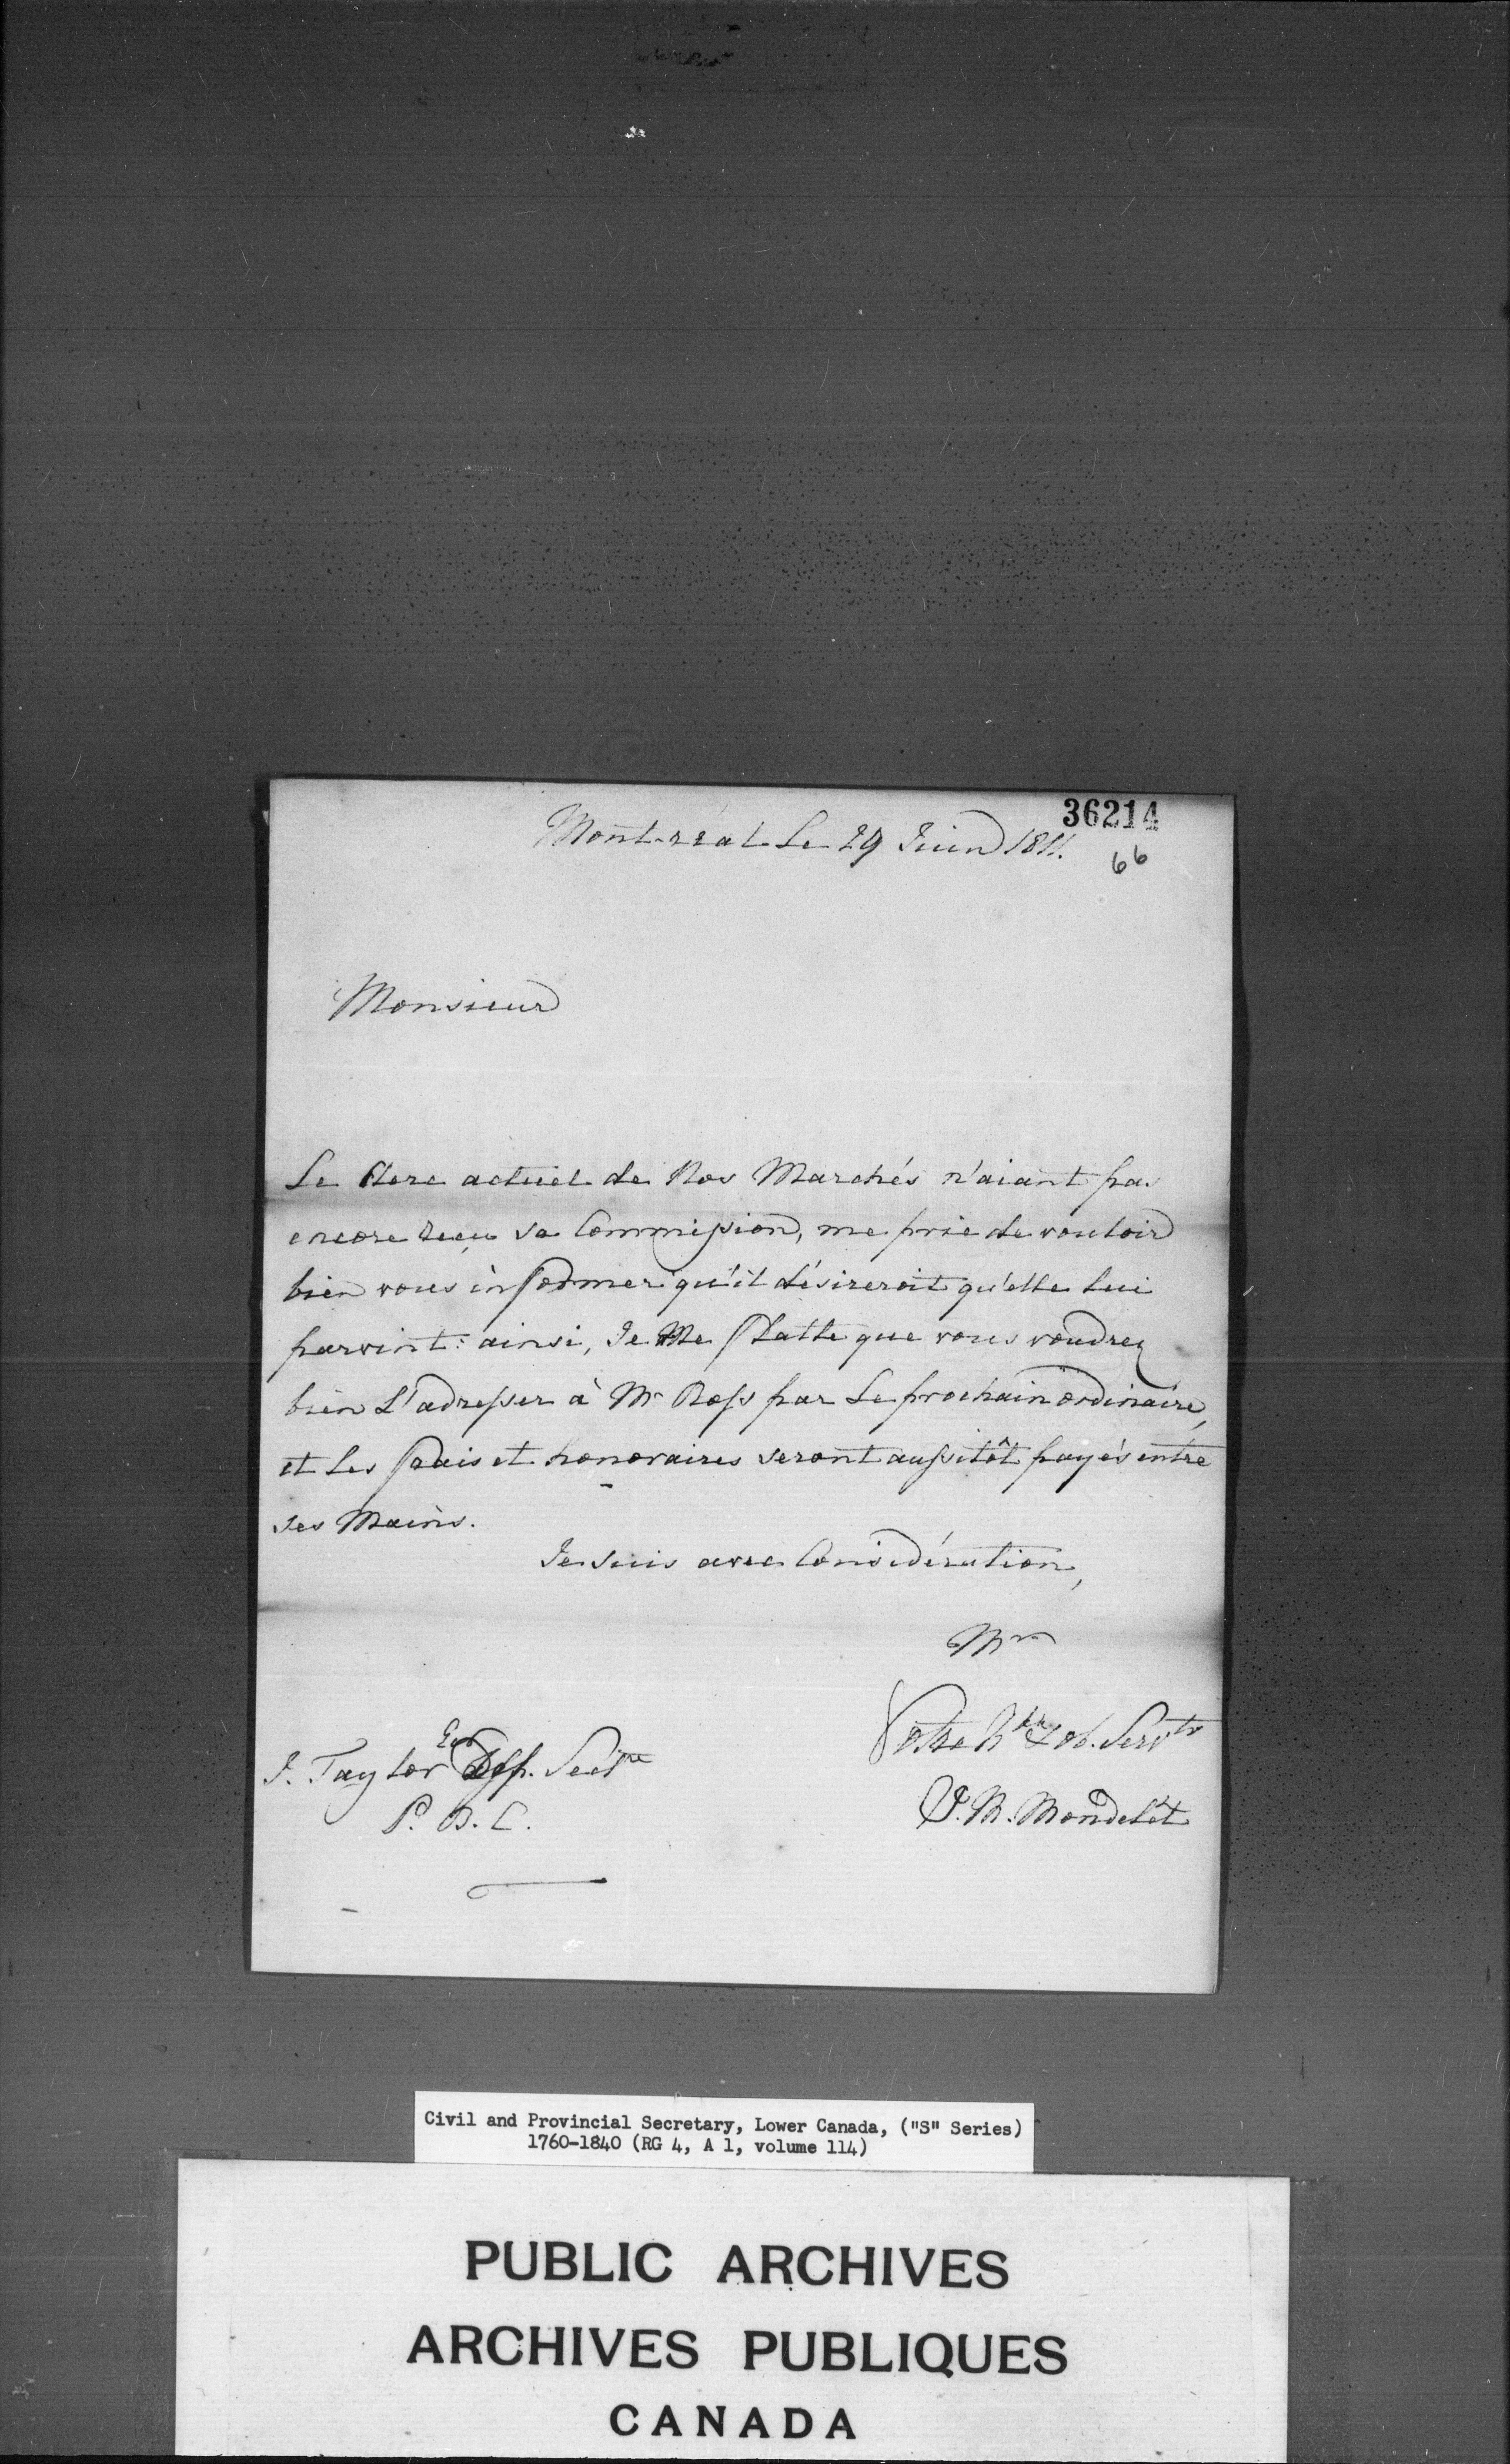 36214
Mont-réal Le 29 Juin 1811.
66
Monsieur
Le Clerc actuel de Nos Marchés n'aiant pas
encore reçu sa Commission, me prie de vouloir
bien vous informer qu'il désireroit qu'elle lui
parvint: ainsi, Je Me flatte que vous voudrez
bien L'adresser à Mr Ross par Le prochain ordinaire,
et Les frais et honoraires seront aussitôt payés entre
ses Mains.
Je suis avec Considération,
Mr
Votre hble & ob. Servtr
J. Taylor Esqr Dep. Secre
P. B. C.
J. M. Mondelet
Civil and Provincial Secretary, Lower Canada, ("S" Series)
1760-1840 (RG 4, A 1, volume 114)
PUBLIC ARCHIVES
ARCHIVES PUBLIQUES
CANADA